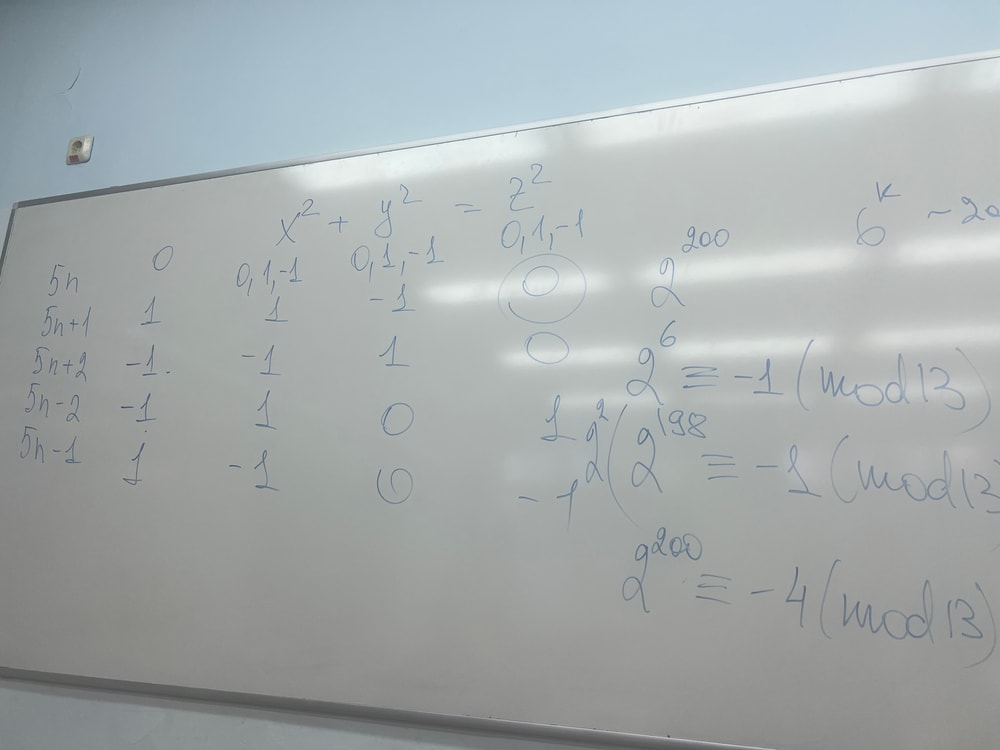 x² + y² = z²
0, 1, -1 0, 1, -1 0, 1, -1
5n 0
5n+1 1 1 -1 0
5n+2 -1. -1 1 0
5n-2 -1 1 0 1
5n-1 1 -1 0 -1
2²⁰⁰
2⁶ ≡ -1 (mod 13)
2² ( 2¹⁹⁸ ≡ -1 (mod 13
2²⁰⁰ ≡ -4 (mod 13)
6ᵏ - 20